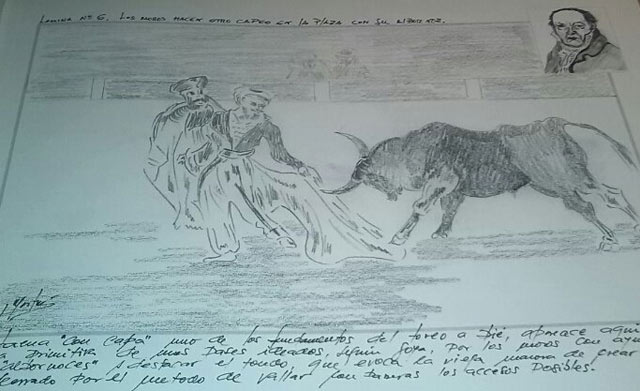 LAMINA Nº 6. LOS MOROS HACEN OTRO CAPEO EN LA PLAZA CON SU ALBORNOZ.
"con capa" uno de los fundamentos del toreo a pié, aparece aquí
primitiva de unos pases ideados, según Goya, por los moros con
y destacar el fondo, que evoca la vieja manera de crear
cerrado por el metodo de vallar con barreras los accesos posibles.